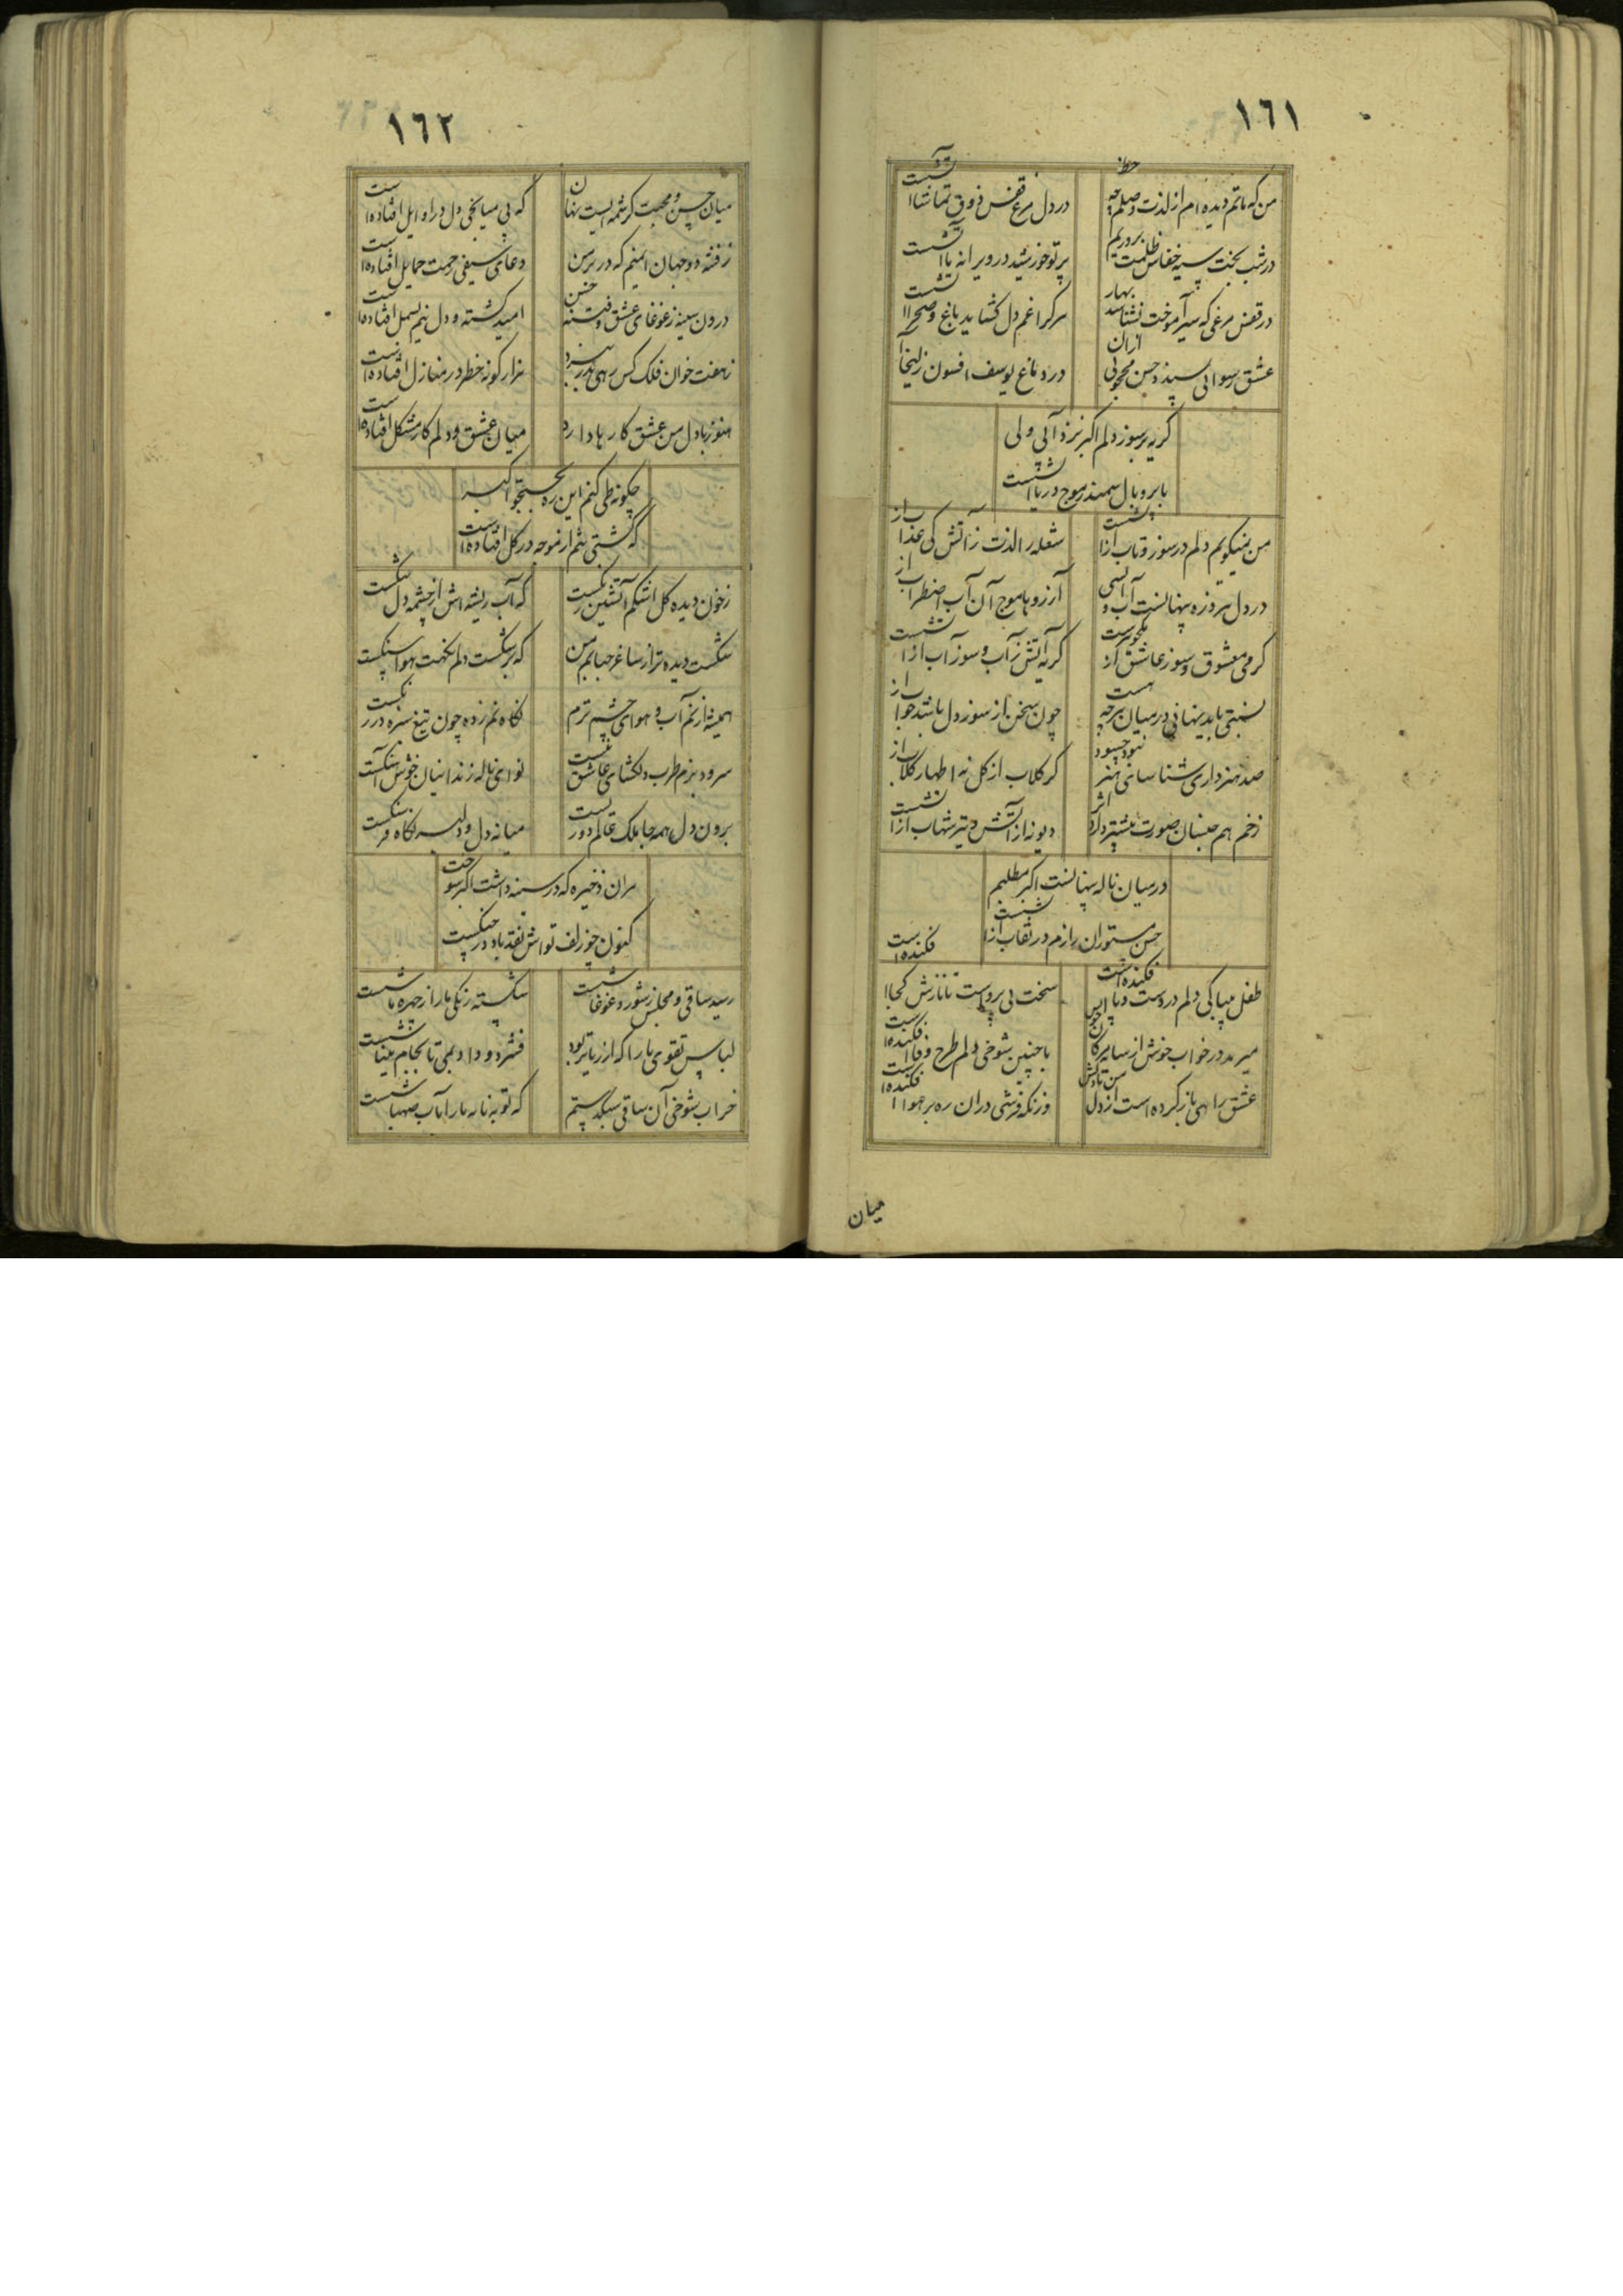 ١٦١
من که ماتم دیده ام از لذت وصلم چه حظ
در دل مرغ قفس ذوق تماشا آتشست
در شب بخت سیه خفاش ظلمت پروریم
پرتو خورشید در ویرانه ما آتشست
در قفس مرغی که سر آموخت نشناسد بهار
هر کرا غم دل کشاید باغ و صحرا آتشست
عشق رسوایی پسندد حسن محجوبی ازان
در دماغ یوسف افسون زلیخا آتشست
کریه بر سوز دلم اکبر نزد آبی ولی
با پر و بال سمندر موج دریا آتشست
من نمیکویم دلم در سوز و تاب از آتشست
شعله را لذت ز آتش کی عذاب از آتشست
در دل هر ذره پنهانست آب و آتشی
آرزوها موج آن آب اضطراب از آتشست
کرمی معشوق و سوز عاشق از یکجوهرست
کریه آتش ز آب و سوز آب از آتشست
نسبتی باید نهانی در میان هر چه هست
چون سخن از سوز دل باشد جواب از آتشست
صد هنر داری شناسای هنر نبود چسود
کر کلاب از کل نه اظهار کلاب از آتشست
زخم هم جنسان بصورت بیشتر دارد اثر
دیو نه از آتش و تیر شهاب از آتشست
در میان ناله پنهانست اکبر مطلبم
حسن مستوران رازم در نقاب از آتشست
طفل بیباکی دلم در دست و پا افکنده است
سخت بی پرواست تا نازش کجا افکنده است
میرمد در خواب خوش از سایه مژکان خویش
با چنین شوخی دلم طرح وفا افکنده است
عشق راهی باز کرده است از دل من تا دلش
وز نکه فرشی دران ره بر هوا افکنده است
میان
١٦٢
میان حسن و محبت کرشمه ایست نهان
که بی میانجی دل در اوایل افتاده است
ز فتنه دو جهان ایمنم که در بر من
دعای سیفی رحمت حمایل افتاده است
درون سینه ز غوغای عشق و فتنه حسن
امید کشته و دل نیم بسمل افتاده است
ز هفت خوان فلک کس رهی بدر نبرد
هزار کونه خطر در منازل افتاده است
هنوز با دل من عشق کارها دارد
میان عشق و دلم کار مشکل افتاده است
چکونه طی کنم این ره بجستجو اکبر
که کشتی بتم از موجه در کل افتاده است
ز خون دیده کل اشکم آتشین رنکست
که آب ریشه اش از چشمه دل تنکست
شکست دیده تر از ساغر حبابم من
که بر شکست دلم نکهت هوا سنکست
همیشه از نم آب و هوای چشم ترم
نکاه نم زده چون تیغ سبزه در زنکست
سرود بزم طرب دلکشای عاشق نیست
نوای ناله زندانیان خوش آهنکست
برون دل همه جا ملک عالم دور نیست
میانه دل و دلبر نکاه فرسنکست
هران ذخیره که در سینه داشت اکبر سوخت
کنون چو زلف تواش نقد باد در چنکست
رسید ساقی و مجلس ز شور و غوغا شست
شکسته رنکی ما را ز چهره ما شست
لباس تقوی ما را که از ریا تر بود
فشرد و داد بمی تا بجام مینا شست
خراب شوخی آن ساقی سبکدستم
که توبه نامه ما را بآب صهبا شست